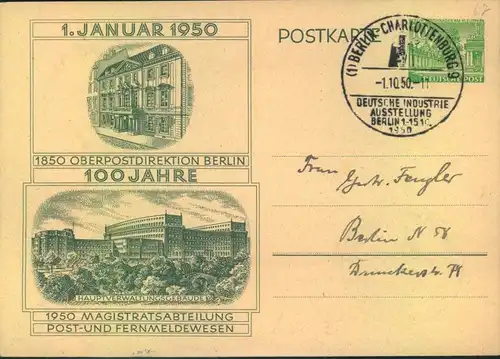 1. JANUAR 1950
1850 OBERPOSTDIREKTION BERLIN
100 JAHRE
HAUPTVERWALTUNGSGEBÄUDE
1950 MAGISTRATSABTEILUNG
POST-UND FERNMELDEWESEN
POSTKARTE
(1) BERLIN-CHARLOTTENBURG 9
-1.10.50.-11
DEUTSCHE INDUSTRIE
AUSSTELLUNG
BERLIN 1-15.10.
1950
DEUTSCHE POST
Frau Gertr. Fengler
Berlin N 58